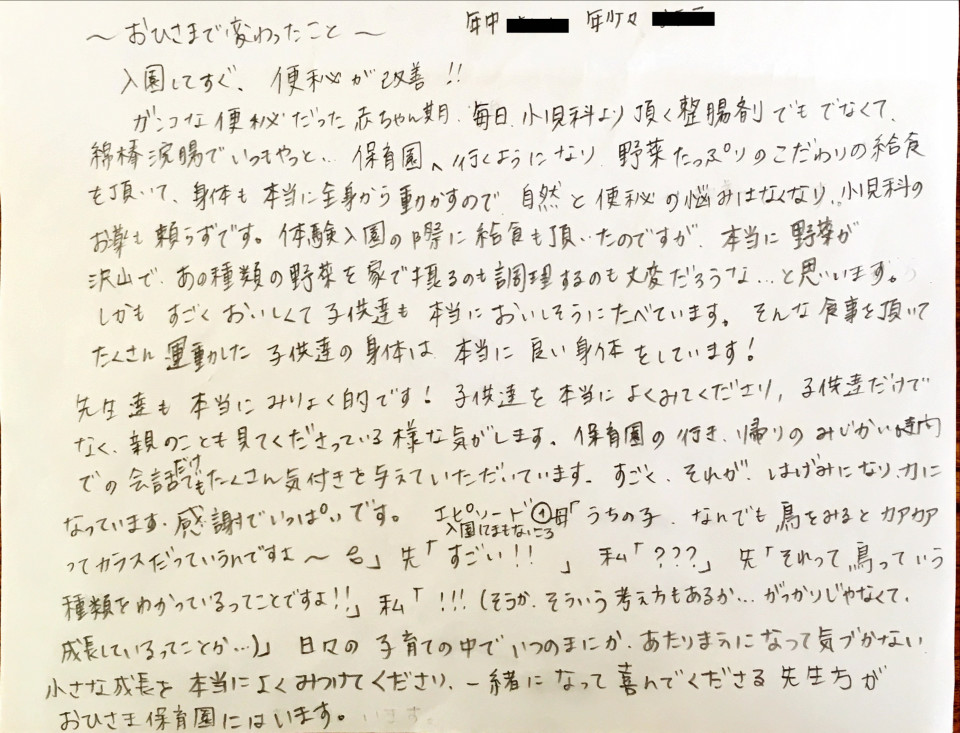 ～おひさまで変わったこと～　年中　年少々
入園してすぐ、便秘が改善!!
ガンコな便秘だった赤ちゃん期、毎日、小児科より頂く整腸剤でもでなくて、
綿棒浣腸でいつもやっと… 保育園へ行くようになり 野菜たっぷりのこだわりの給食
を頂いて、身体も本当に全身から動かすので 自然と便秘の悩みはなくなり、小児科の
お薬も頼らずです。体験入園の際に給食も頂いたのですが、本当に野菜が
沢山で、あの種類の野菜を家で採るのも調理するのも大変だろうな…と思います。
しかも すごくおいしくて子供達も本当においしそうにたべています。そんな食事を頂いて
たくさん運動した子供達の身体は 本当に良い身体をしています!
先生達も本当にみりょく的です! 子供達を本当によくみてくださり、子供達だけで
なく、親のことも見てくださっている様な気がします。保育園の行き、帰りのみじかい時間
での会話だけでもたくさん気付きを与えていただいています。すごく、それが、はげみになり、力に
なっています。感謝でいっぱいです。 エピソード① 入園してまもないころ 母「うちの子、なんでも鳥をみると カアカア
ってカラスだっていうんですよ～」先「すごい!!」私「???」先「それって、鳥っていう
種類をわかっているってことですよ!!」私「!!!(そうか、そういう考え方もあるか…がっかりじゃなくて、
成長しているってことか…)」日々の子育ての中でいつのまにか、あたりまえになって気づかない
小さな成長を本当によくみつけてくださり、一緒になって喜んでくださる先生方が
おひさま保育園にはいます。